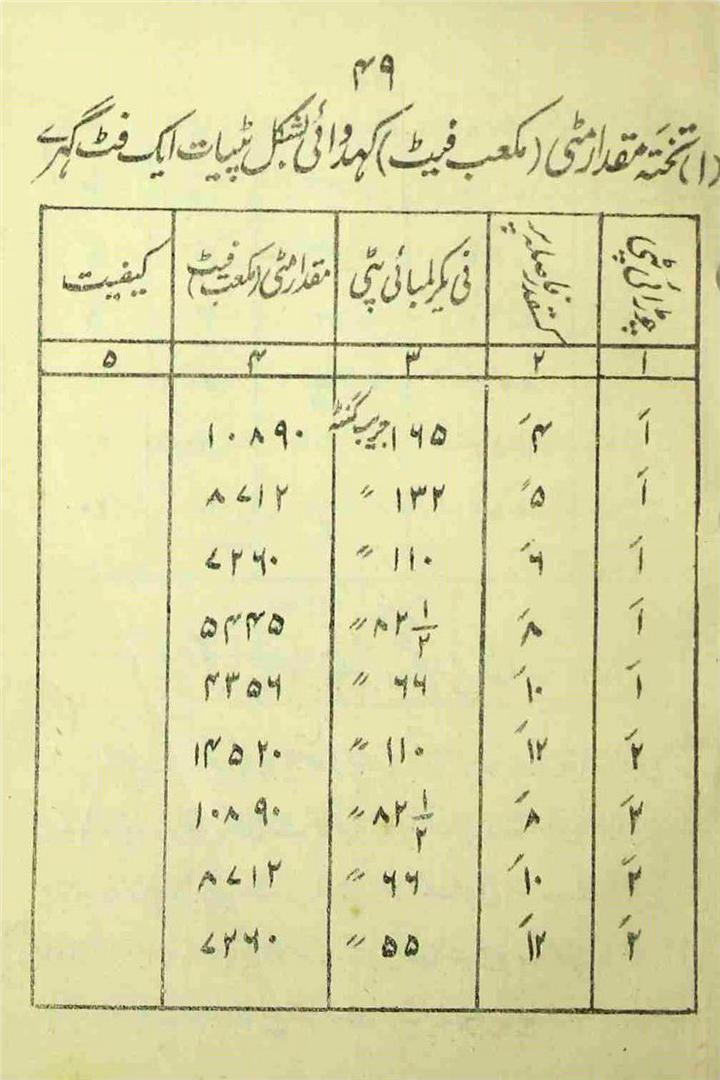 ۴۹
(۱) تختہ مقدار مٹی (مکعب فیٹ) کھدوائی بشکل پٹیات ایک فٹ گہرے
چوڑائی پٹی | کسقدر فاصلہ پر | فی ایکڑ لمبائی پٹی | مقدار مٹی (مکعب فیٹ) | کیفیت
۱ | ۲ | ۳ | ۴ | ۵
۱َ | ۴َ | ۱۶۵ جریب گنٹہ | ۱۰۸۹۰
۱َ | ۵َ | ۱۳۲ ״ | ۸۷۱۲
۱َ | ۶َ | ۱۱۰ ״ | ۷۲۶۰
۱َ | ۸َ | ۸۲ ۱/۲ ״ | ۵۴۴۵
۱َ | ۱۰َ | ۶۶ ״ | ۴۳۵۶
۲َ | ۱۲َ | ۱۱۰ ״ | ۱۴۵۲۰
۲َ | ۸َ | ۸۲ ۱/۲ ״ | ۱۰۸۹۰
۲َ | ۱۰َ | ۶۶ ״ | ۸۷۱۲
۲َ | ۱۲َ | ۵۵ ״ | ۷۲۶۰